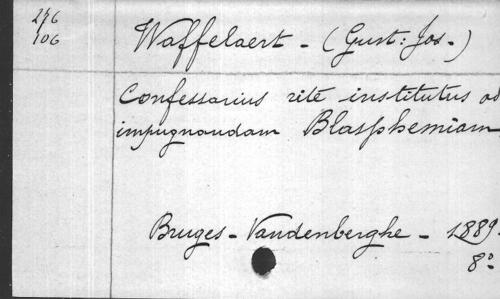 276
106
Waffelaert - (Gust: Jos -)
Confessarius rite institutus ad
impugnandam Blasphemiam
Bruges - Vandenberghe - 1889.
8°